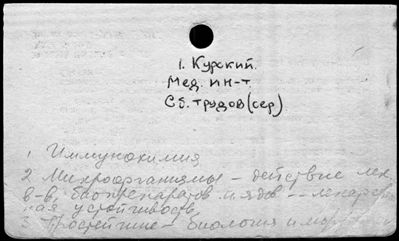 1. Курский.
Мед. ин-т.
Сб. трудов (сер)
1. Иммунохимия
2. Микроорганизмы - действие лек.
в-в, биопрепаратов и ядов -- лекарствен
ная устойчивость
3. Простейшие - биология и